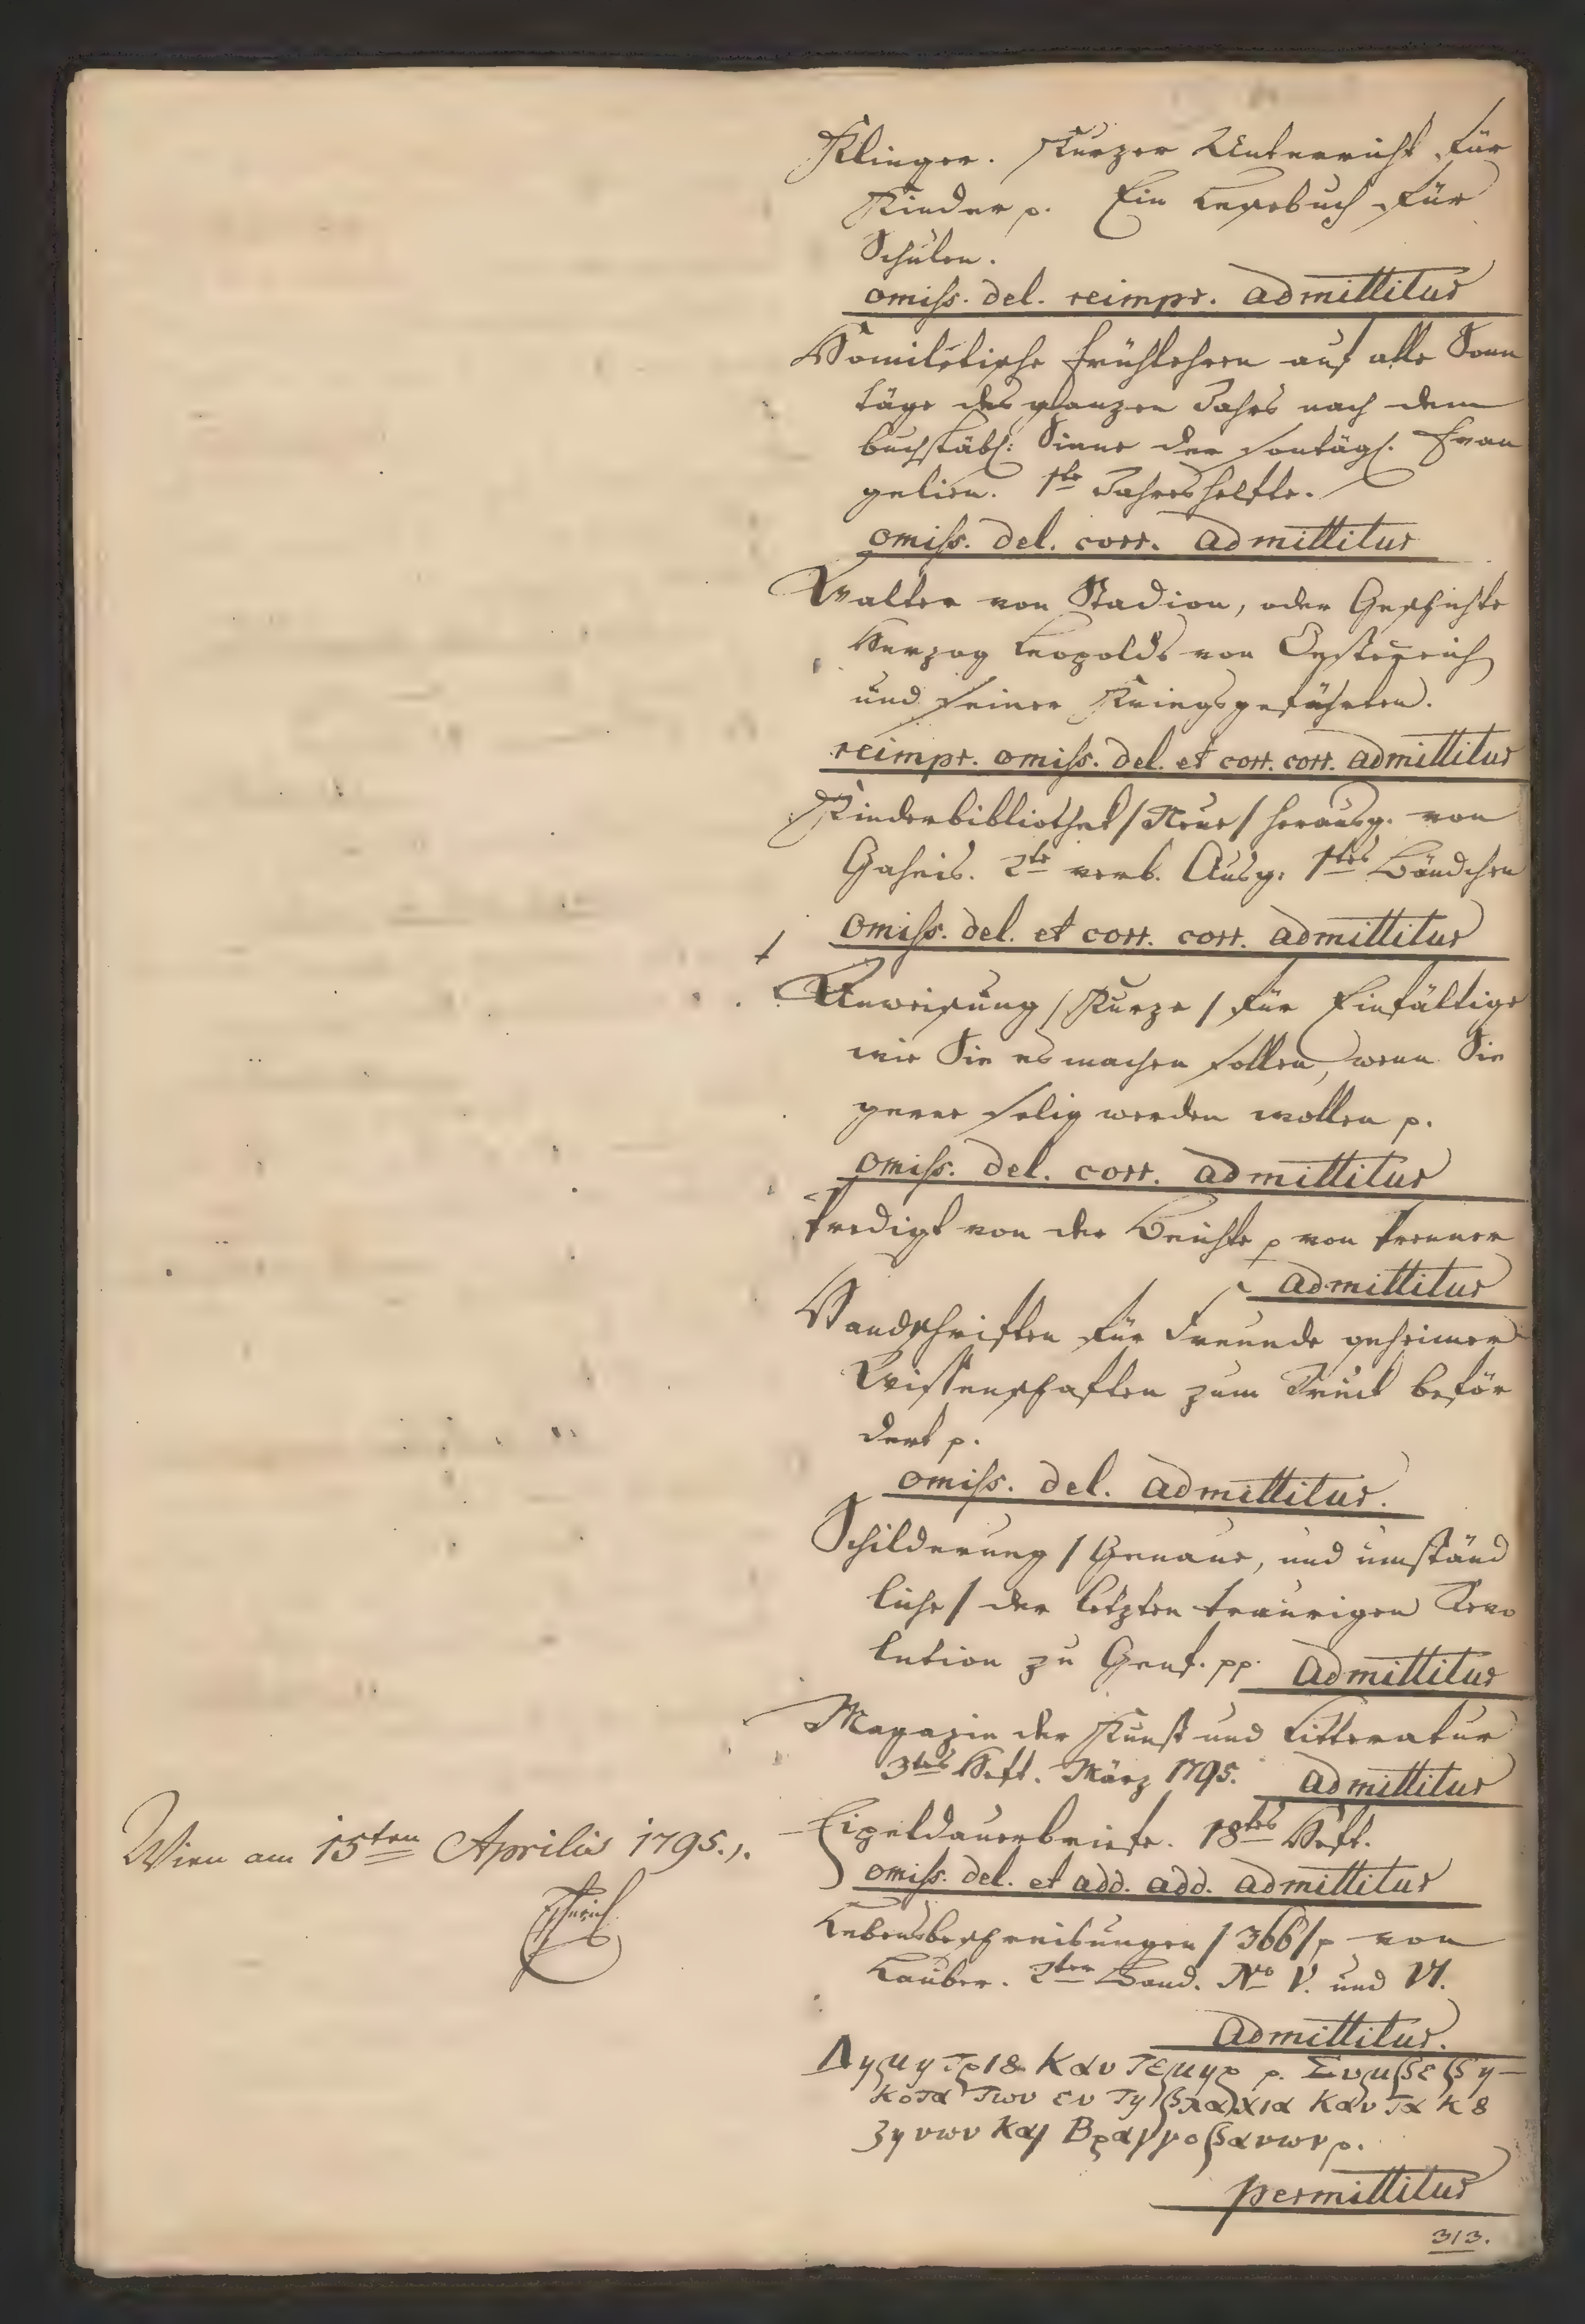 Klinger. Kurzer Unterricht für
Kinder p. Ein Lesebuch für
Schulen.
omiss. del. reimpr. admittitur
Homiletische Frühlehren auf alle Sonn
täge des ganzen Jahrs nach dem
buchstäbl: Sinne der sontägl. Evan
gelien. 1te Jahreshelfte.
omiss. del. corr. admittitur
Walter von Stadion, oder Geschichte
Herzog Leopolds von Oesterreich
und seiner Kriegsgefährten.
reimpr. omiss. del. et corr. corr. admittitur
Kinderbibliothek / Neue / herausg. von
Gaheis. 2te verb. Ausg. 1tes Bändchen
omiss. del. et corr. corr. admittitur
Anweisung / Kurze / für Einfältige
wie Sie es machen sollen, wenn Sie
gerne selig werden wollen p.
omiss. del. corr. admittitur
Predigt von der Beichte p von Prenner
admittitur
Handschriften für Freunde geheimer
Wissenschaften zum Druck beför
dert p.
omiss. del. admittitur.
Schilderung / Genaue, und umständ
liche / der letzten traurigen Revo
lution zu Genf. pp. admittitur
Magazin der Kunst und Litteratur
3tes Heft. März 1795. admittitur
Eipeldauerbriefe. 18tes Heft.
omiss. del. et add. add. admittitur
Lebensbeschreibungen / 366 / p von
Lauber. 2ter Band. No V. und VI.
admittitur.
κοτα των εν τη
permittitur
313.
Wien am 15ten Aprilis 1795.